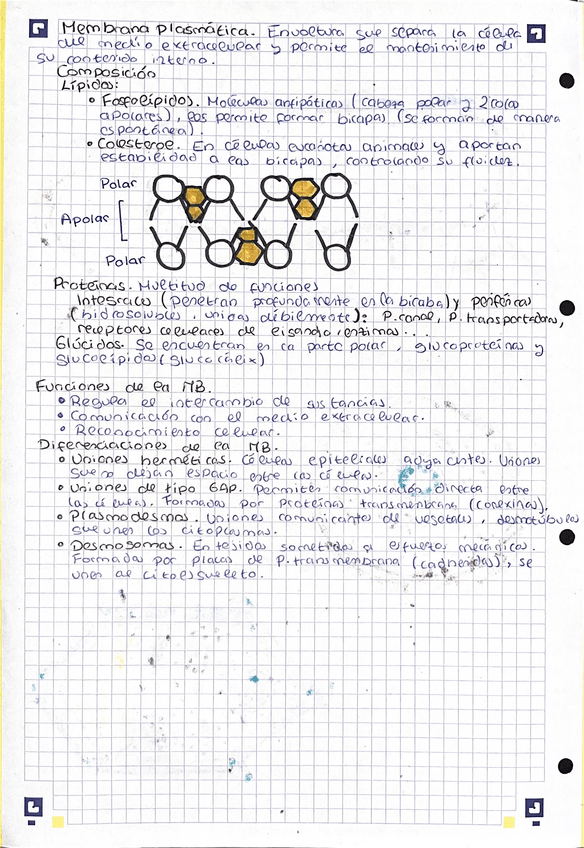 Membrana Plasmática. Envoltura que separa la célula
del medio extracelular y permite el mantenimiento de
su contenido interno.
Composición
Lípidos:
• Fosfolípidos. Moléculas anfipáticas (cabeza polar y 2 colas
apolares), los permite formar bicapas (se forman de manera
espontánea).
• Colesterol. En células eucariotas animales y aportan
estabilidad a las bicapas, controlando su fluidez.
Polar
Apolar
Polar
Proteínas. Multitud de funciones
Integrales (penetran profundamente en la bicapa) y periféricas
(hidrosolubles, unidas débilmente): P. canal, P. transportadoras,
receptores celulares de ligando, enzimas...
Glúcidos. Se encuentran en la parte polar, glucoproteínas y
glucolípidos (glucocálix)
Funciones de la MB.
• Regula el intercambio de sustancias.
• Comunicación con el medio extracelular.
• Reconocimiento celular.
Diferenciaciones de la MB.
• Uniones herméticas. Células epiteliales adyacentes. Uniones
que no dejan espacio entre las células.
• Uniones de tipo GAP. Permiten comunicación directa entre
las células. Formadas por proteínas transmembrana (conexinas).
• Plasmodesmos. Uniones comunicantes de vegetales, desmotúbulos
que unen los citoplasmas.
• Desmosomas. En tejidos sometidos a esfuerzo mecánico.
Formadas por placas de P. transmembrana (cadherinas), se
unen al citoesqueleto.